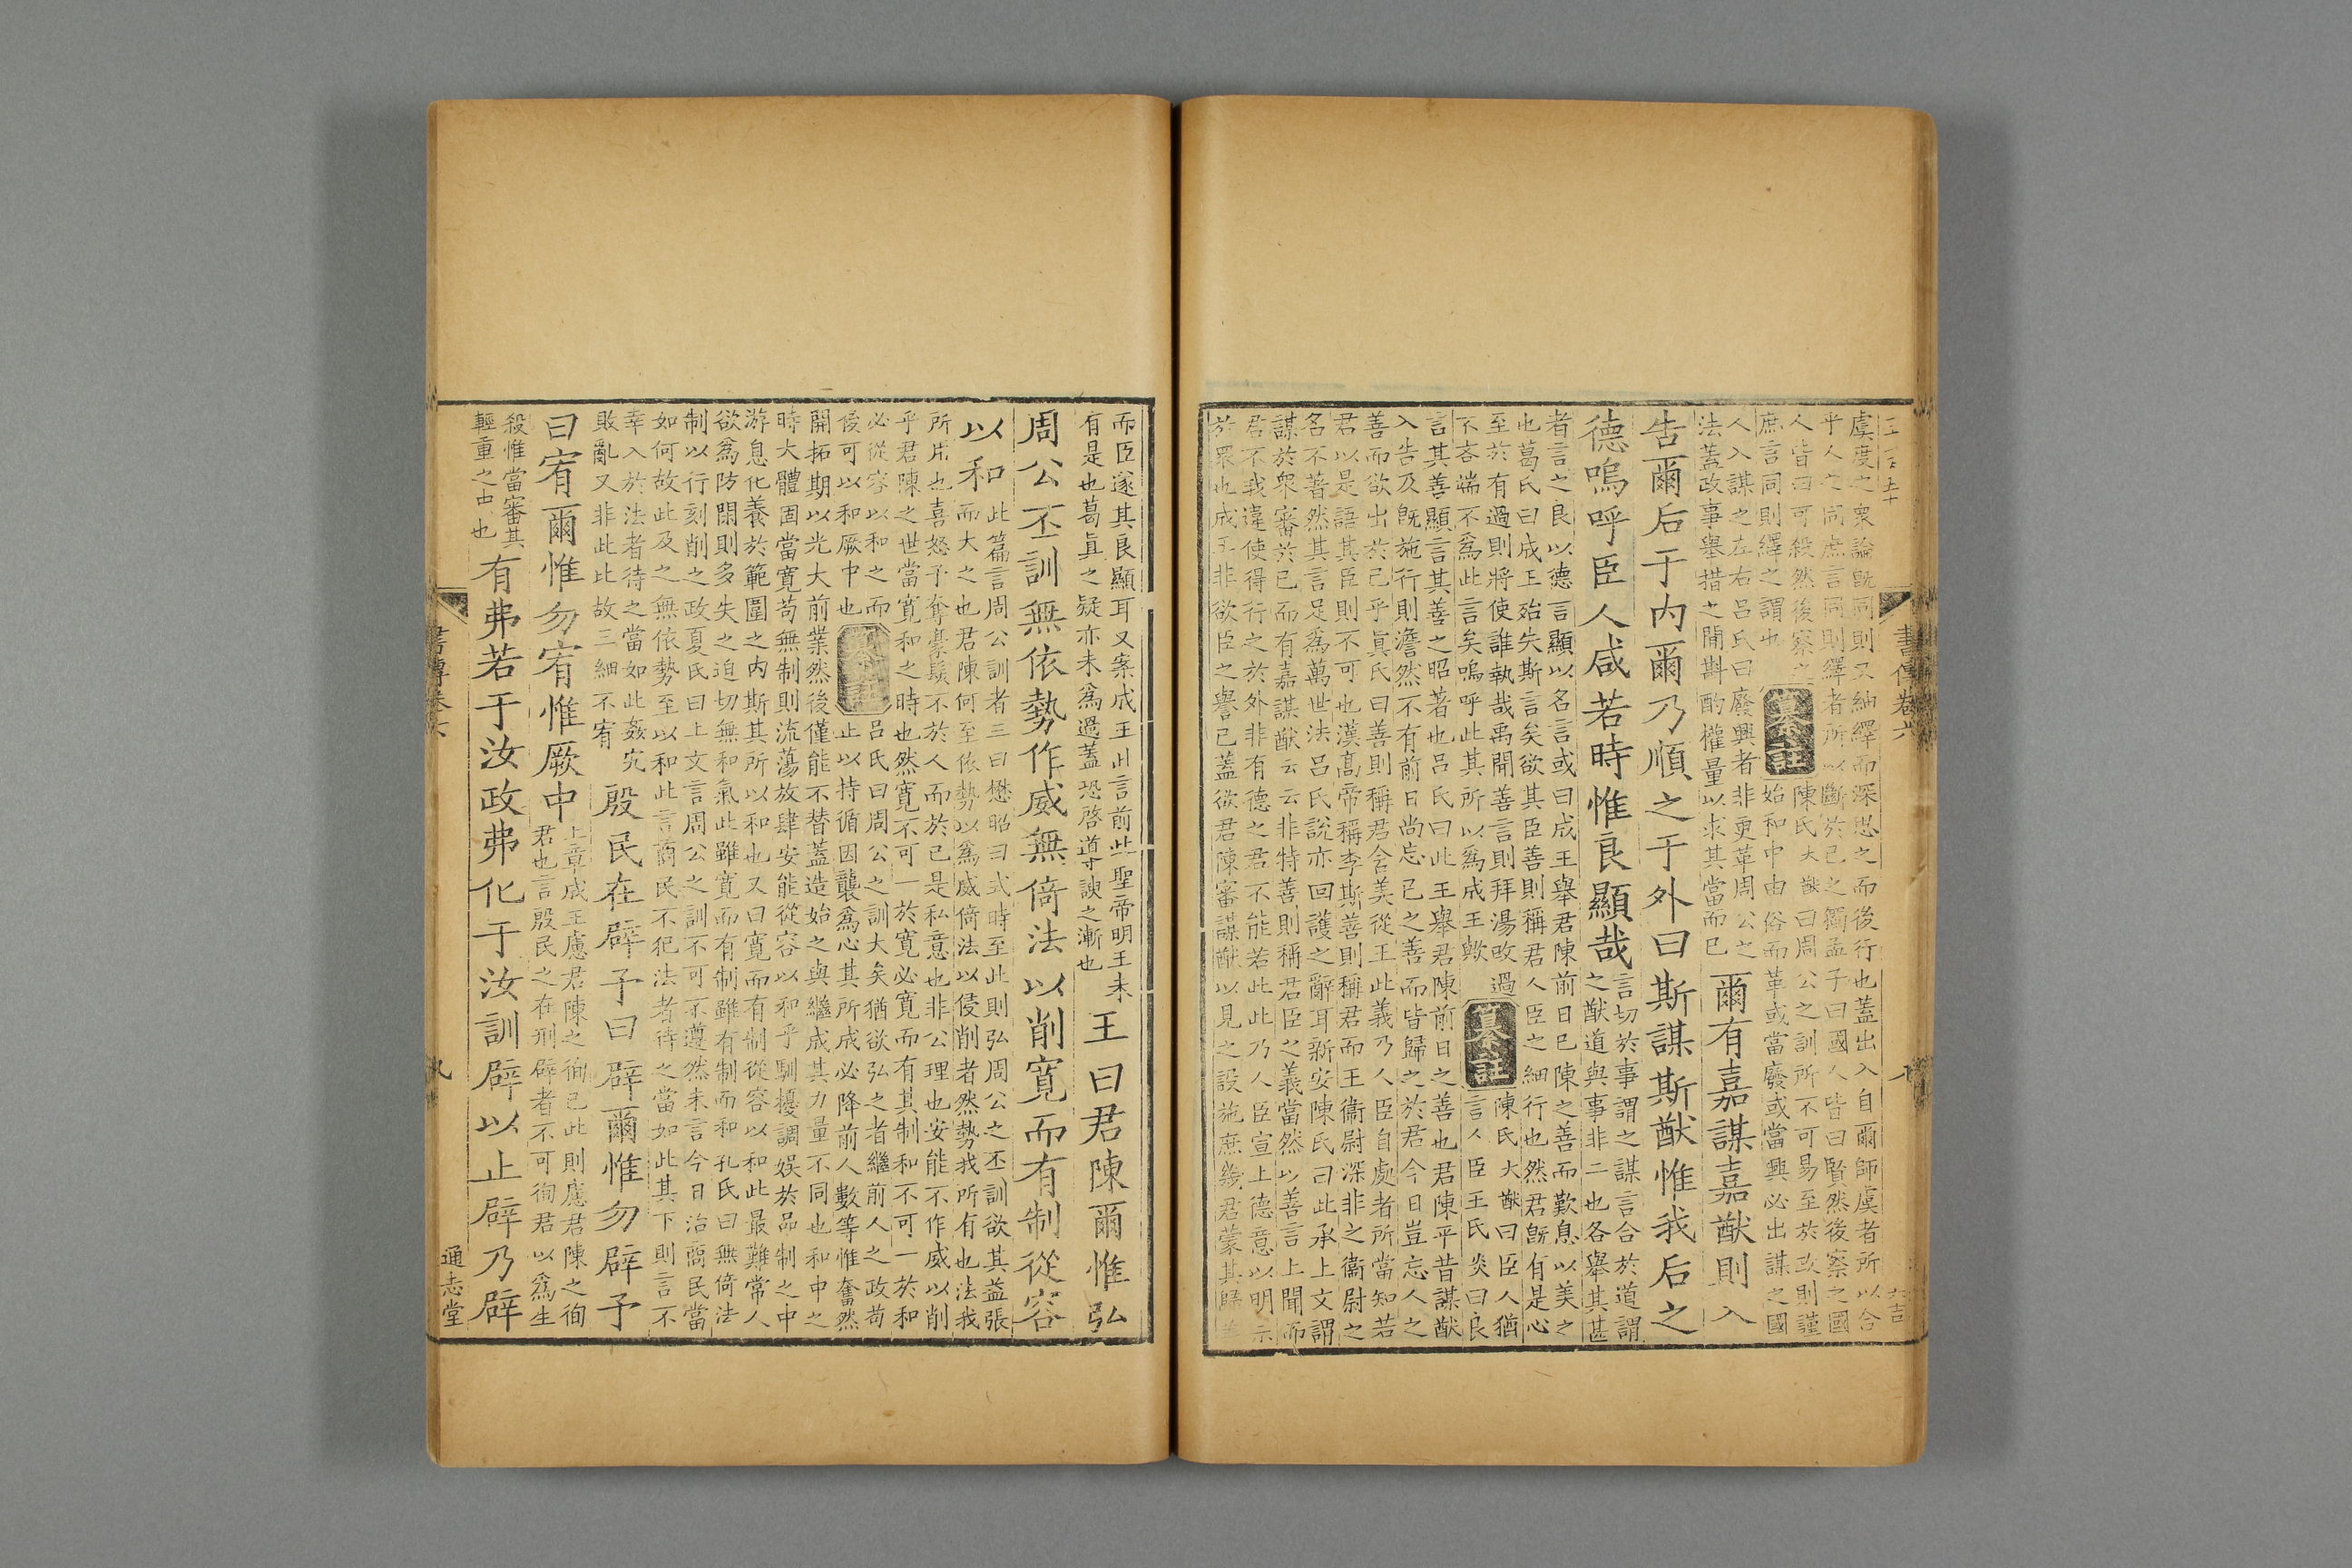 虞度之衆論旣同則又紬繹而深思之而後行也蓋出入自爾師虞者所以合
乎人之同庶言同則繹者所以斷於己之獨孟子曰國人皆曰賢然後察之國
人皆曰可殺然後察之
庶言同則繹之謂也
纂註
陳氏大猷曰周公之訓所不可易至於政則謹
始和中由俗而革或當廢或當興必出謀之國
人入謀之左右呂氏曰廢興者非更革周公之
法蓋政事舉措之間斟酌權量以求其當而已
爾有嘉謀嘉猷則入
告爾后于內爾乃順之于外曰斯謀斯猷惟我后之
德嗚呼臣人咸若時惟良顯哉
言切於事謂之謀言合於道謂
之猷道與事非二也各舉其甚
者言之良以德言顯以名言或曰成王舉君陳前日已陳之善而歎息以美之
也葛氏曰成王殆失斯言矣欲其臣善則稱君人臣之細行也然君旣有是心
至於有過則將使誰執哉禹聞善言則拜湯改過
不吝端不爲此言矣嗚呼此其所以爲成王歟
纂註
陳氏大猷曰臣人猶
言人臣王氏炎曰良
言其善顯言其善之昭著也呂氏曰此王舉君陳前日之善也君陳平昔謀猷
入告及旣施行則澹然不有前日尚忘己之善而皆歸之於君今日豈忘人之
善而欲出於己乎眞氏曰善則稱君舍美從王此義乃人臣自處者所當知若
君以是語其臣則不可也漢高帝稱李斯善則稱君而王衞尉深非之衞尉之
名不著然其言足爲萬世法呂氏說亦回護之辭耳新安陳氏曰此承上文謂
謀於衆審於己而有嘉謀猷云云非特善則稱君臣之義當然以善言上聞而
君不我違使得行之於外非有德之君不能若此此乃人臣宣上德意以明示
於衆也成王非欲臣之譽己蓋欲君陳審謀猷以見之設施庶幾君蒙其歸美
書傳卷六
而臣遂其良顯耳又案成王此言前此聖帝明王未
有是也葛眞之疑亦未爲過蓋恐啓道諛之漸也
王曰君陳爾惟弘
周公丕訓無依勢作威無倚法以削寬而有制從容
以和
此篇言周公訓者三曰懋昭曰式時至此則弘周公之丕訓欲其益張
而大之也君陳何至依勢以爲威倚法以侵削者然勢我所有也法我
所用也喜怒予奪豪髮不於人而於己是私意也非公理也安能不作威以削
乎君陳之世當寬和之時也然寬不可一於寬必寬而有其制和不可一於和
必從容以和之而
後可以和厥中也
纂註
呂氏曰周公之訓大矣猶欲弘之者繼前人之政苟
止以持循因襲爲心其所成必降前人數等惟奮然
開拓期以光大前業然後僅能不替蓋造始之與繼成其力量不同也和中之
時大體固當寬苟無制則流蕩放肆安能從容以和乎馴擾調娛於品制之中
游息化養於範圍之內斯其所以和也又曰寬而有制從容以和此最難常人
欲爲防閑則多失之迫切無和氣此雖寬而有制雖有制而和孔氏曰無倚法
制以行刻削之政夏氏曰上文言周公之訓不可不遵然未言今日治商民當
如何故此及之無依勢至以和此言商民不犯法者待之當如此其下則言不
幸入於法者待之當如此姦宄
敗亂又非此比故三細不宥
殷民在辟予曰辟爾惟勿辟予
曰宥爾惟勿宥惟厥中
上章成王慮君陳之徇己此則慮君陳之徇
君也言殷民之在刑辟者不可徇君以爲生
殺惟當審其
輕重之中也
有弗若于汝政弗化于汝訓辟以止辟乃辟
書傳卷六
九
通志堂